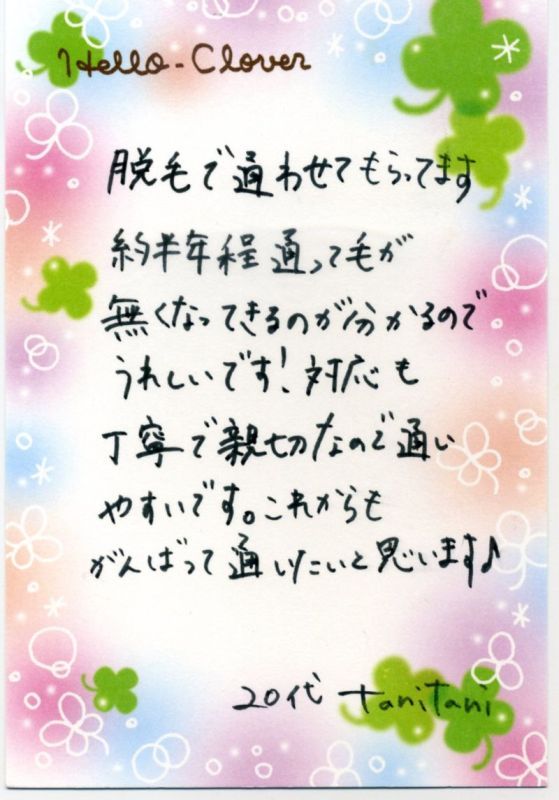 Hello-Clover
脱毛で通わせてもらってます
約半年程通って毛が
無くなってきるのが分かるので
うれしいです!対応も
丁寧で親切なので通い
やすいです。これからも
がんばって通いたいと思います♪
20代 tanitani